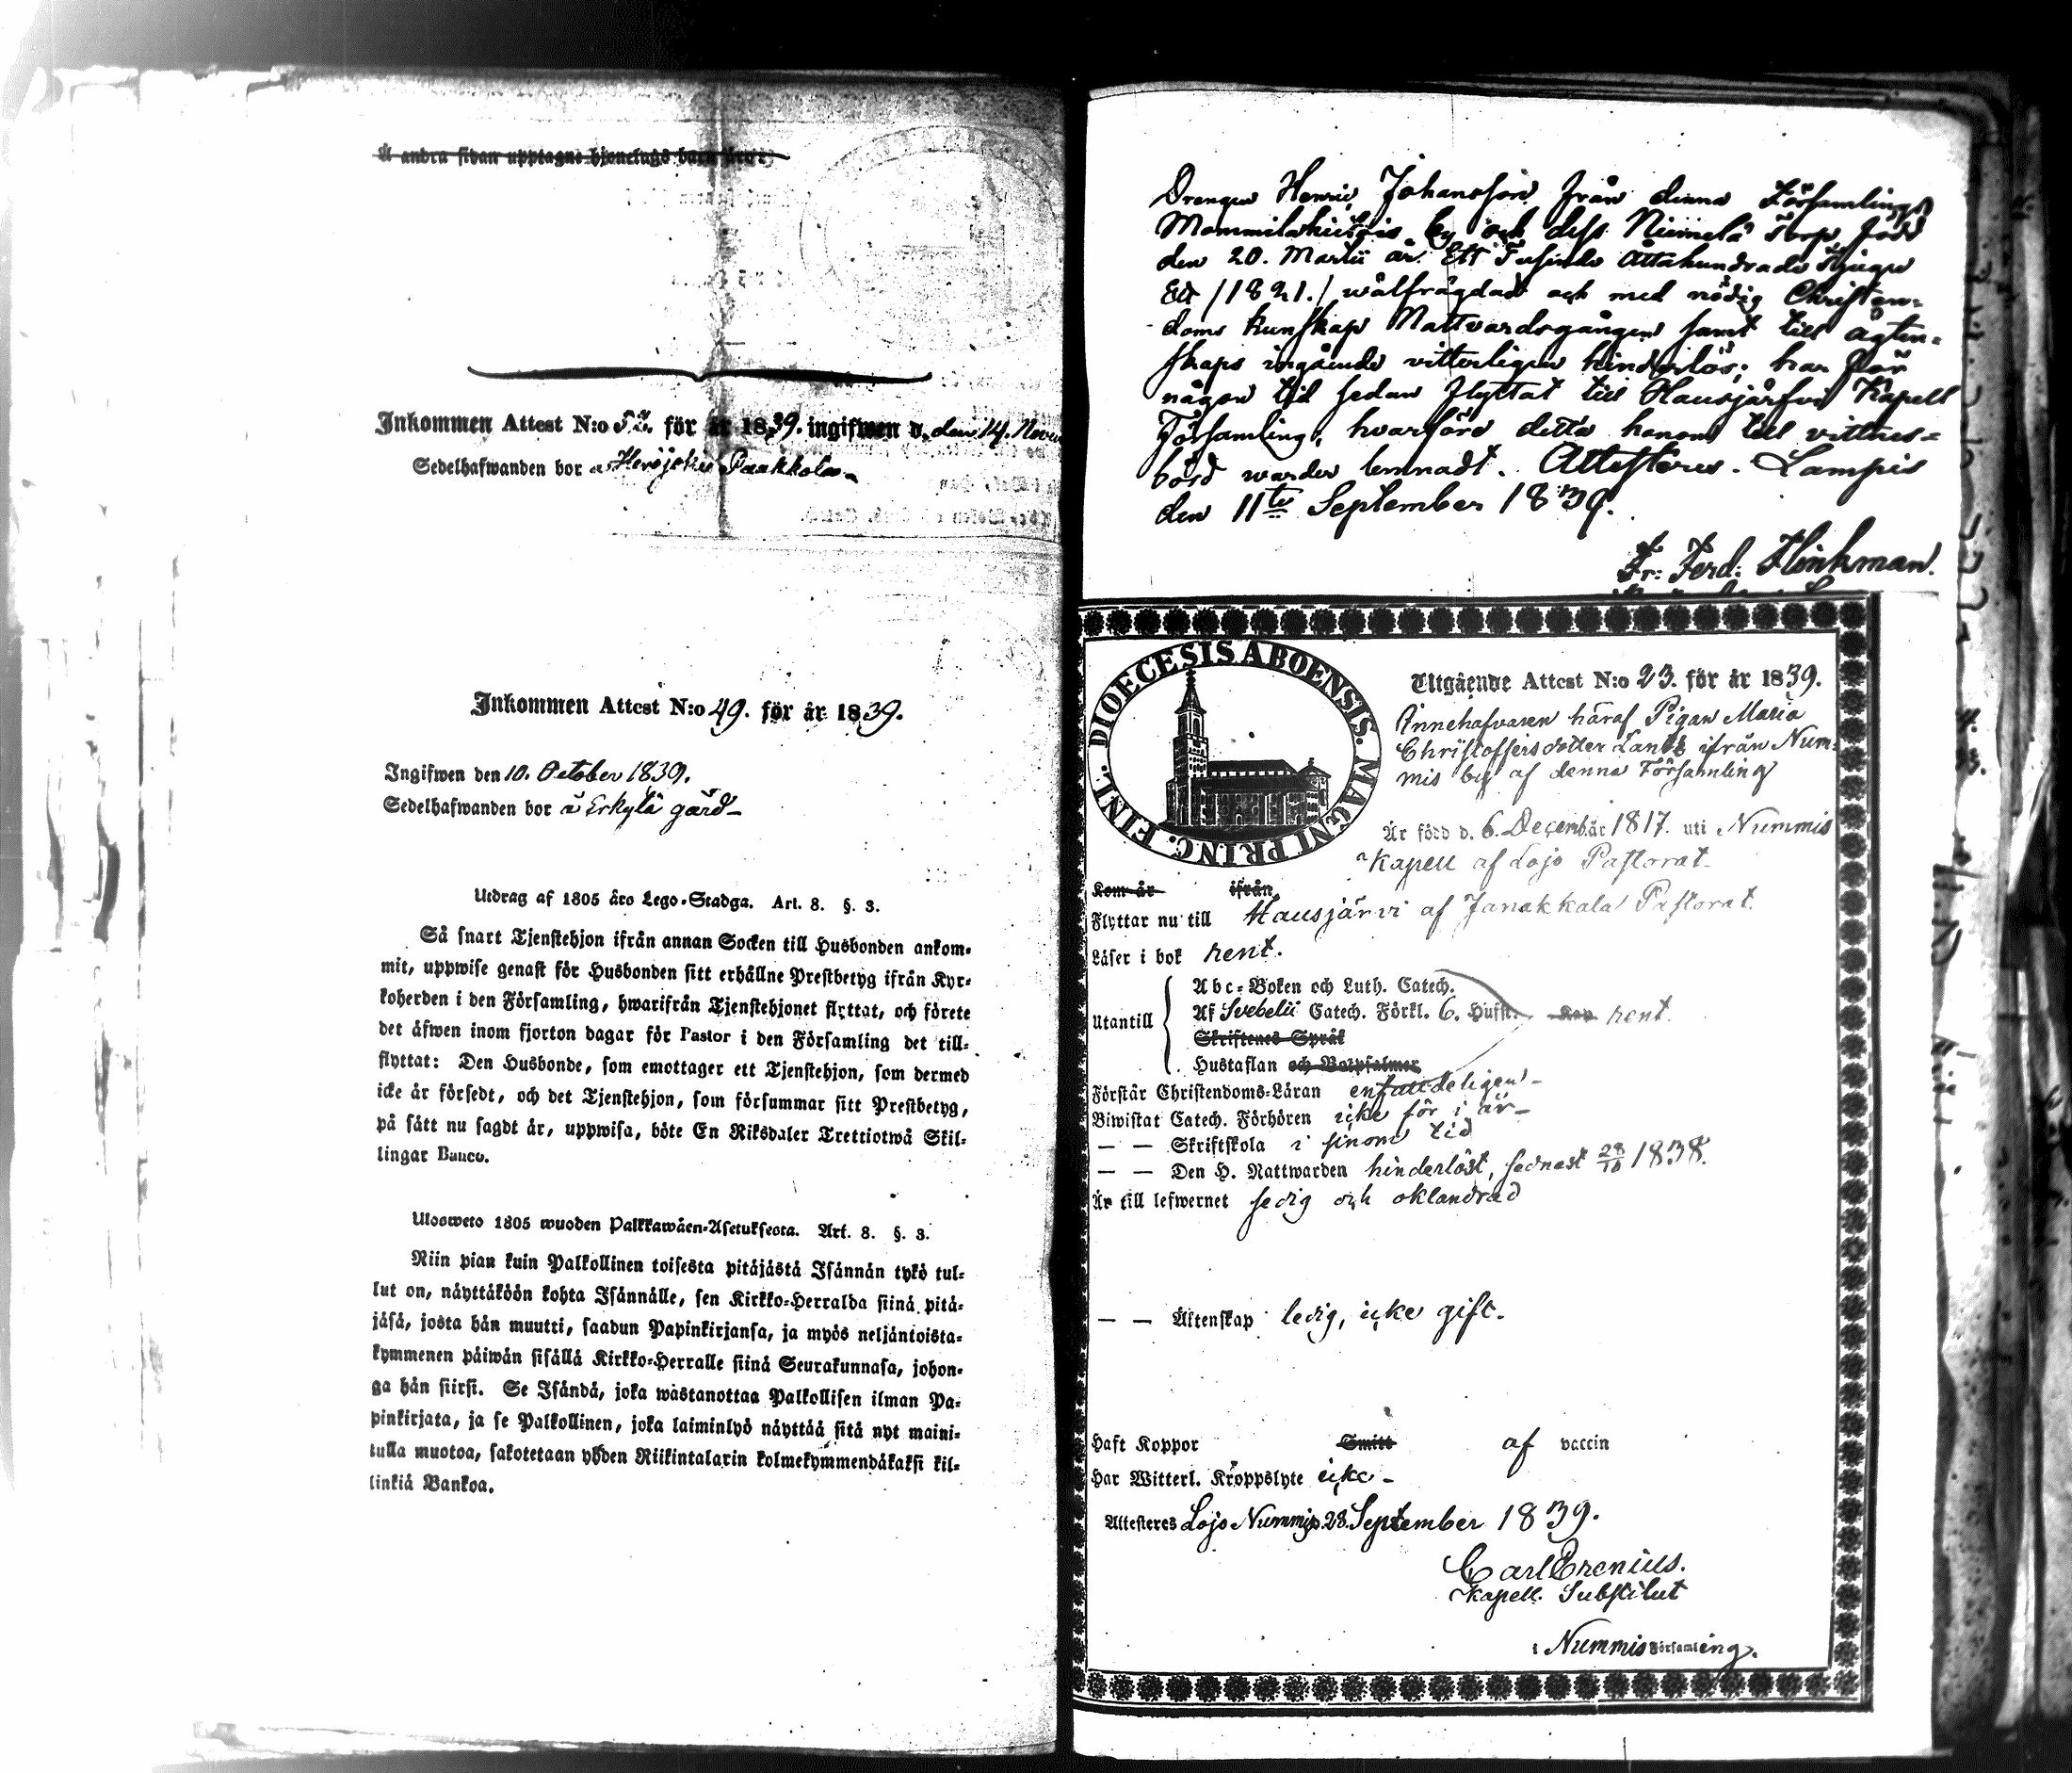 Å andra sidan upptagne hjonelags barn äro:
Inkommen Attest N:o 52. för år 1839. ingifwen d. den 14. Novem
Sedelhafwanden bor å Herajoki Paakkola
Inkommen Attest N:o 49. för år 1839.
Ingifwen den 10. October 1839.
Sedelhafwanden bor å Erkylä gård
Utdrag af 1805 års Lego-Stadga. Art. 8. §. 3.
Så snart Tjenstehjon ifrån annan Socken till Husbonden ankom-
mit, uppwise genast för Husbonden sitt erhållne Prestbetyg ifrån Kyr-
koherden i den Församling, hwarifrån Tjenstehjonet flyttat, och förete
det äfwen inom fjorton dagar för Pastor i den Församling det till-
flyttat: Den Husbonde, som emottager ett Tjenstehjon, som dermed
icke är försedt, och det Tjenstehjon, som försummar sitt Prestbetyg,
på sätt nu sagdt är, uppwisa, böte En Riksdaler Trettiotwå Skil-
lingar Banco.
Ulosweto 1805 wuoden Palkkawäen-Asetuksesta. Art. 8. §. 3.
Niin pian kuin Palkollinen toisesta pitäjästä Isännän tykö tul-
lut on, näyttäköön kohta Isännälle, sen Kirkko-Herralda siinä pitä-
jäsä, josta hän muutti, saadun Papinkirjansa, ja myös neljäntoista-
kymmenen päiwän sisällä Kirkko-Herralle siinä Seurakunnasa, johon-
ga hän siirsi. Se Isändä, joka wastanottaa Palkollisen ilman Pa-
pinkirjata, ja se Palkollinen, joka laiminlyö näyttää sitä nyt maini-
tulla muotoa, sakotetaan yhden Riikintalarin kolmekymmendäkaksi kil-
linkiä Bankoa.
Drengen Henric Johansson från denna Församlings
Mommilahuitois by och dess Niemelä Torp född
den 20. Martii år Ett Tusende Åttahundrade Tjugu
Ett /1821./ wälfrägdad och med nödig Christen-
doms kunskap Nattvardsgången samt till ägten-
skaps ingående vitterligen hinderlös; har för
någon tid sedan flyttat till Hausjärfvi Kapell
Församling, hvarföre detta honom till vittnes-
börd warder lemnadt. Attesteres. Lampis
den 11te September 1839.
Fr: Ferd: Flinkman.
DIOECESIS ABOENSIS. MAGNI PRINC. FINL.
Utgående Attest N:o 23. för år 1839.
Innehafvaren häraf Pigan Maria
Christoffersdotter Lands ifrån Num-
mis by af denna Församling
Är född d. 6. December 1817. uti Nummis
Kapell af Lojo Pastorat
Kom år ifrån
Flyttar nu till Hausjärvi af Janakkala Pastorat.
Läser i bok rent.
Abc-Boken och Luth. Catech.
Utantill Af Svebelii Catech. Förkl. 6. Hufst. rent.
Skriftenes Språk
Hustaflan och Botpsalmer
Förstår Christendoms-Läran enfaldeligen
Biwistat Catech. Förhören icke för i år
— — Skriftskola i sinom tid
— — Den H. Nattwarden hinderlöst, sednast 28/10 1838.
Är till lefwernet sedig och oklandrad
— — Äktenskap ledig, icke gift.
Haft Koppor Smitt af vaccin
Har Witterl. Kroppslyte icke
Attesteres Lojo Nummis. 28. September 1839.
Carl Erenius.
Kapell. Substitut
i Nummis Församling.